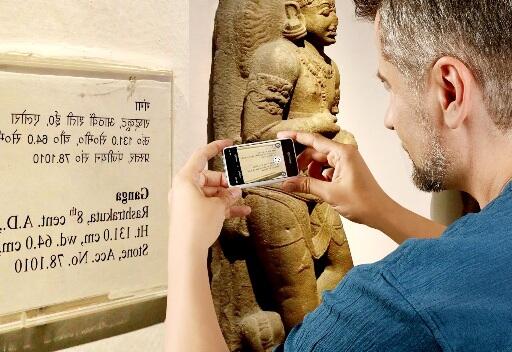 गंगा
राष्ट्रकूट, आठवीं शती ई०, एलोरा
ऊं० 131.0 से०मी०, चौ० 64.0 से०मी०
प्रस्तर, पंजीयन सं० 78.1010
Ganga
Rashtrakuta, 8th cent. A.D.,
Ht. 131.0 cm, wd. 64.0 cm,
Stone, Acc. No. 78.1010